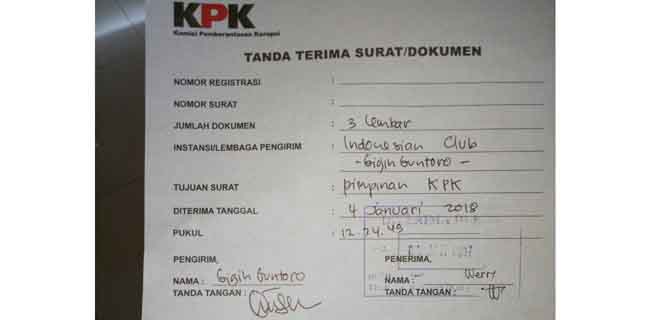 KPK
Komisi Pemberantasan Korupsi
TANDA TERIMA SURAT/DOKUMEN
NOMOR REGISTRASI :
NOMOR SURAT :
JUMLAH DOKUMEN : 3 lembar
INSTANSI/LEMBAGA PENGIRIM : Indonesian Club
- Gigih Guntoro -
TUJUAN SURAT : pimpinan KPK
DITERIMA TANGGAL : 4 Januari 2018
PUKUL : 12.24.49
PENGIRIM, PENERIMA,
NAMA : Gigih Guntoro NAMA : Werry
TANDA TANGAN : TANDA TANGAN :